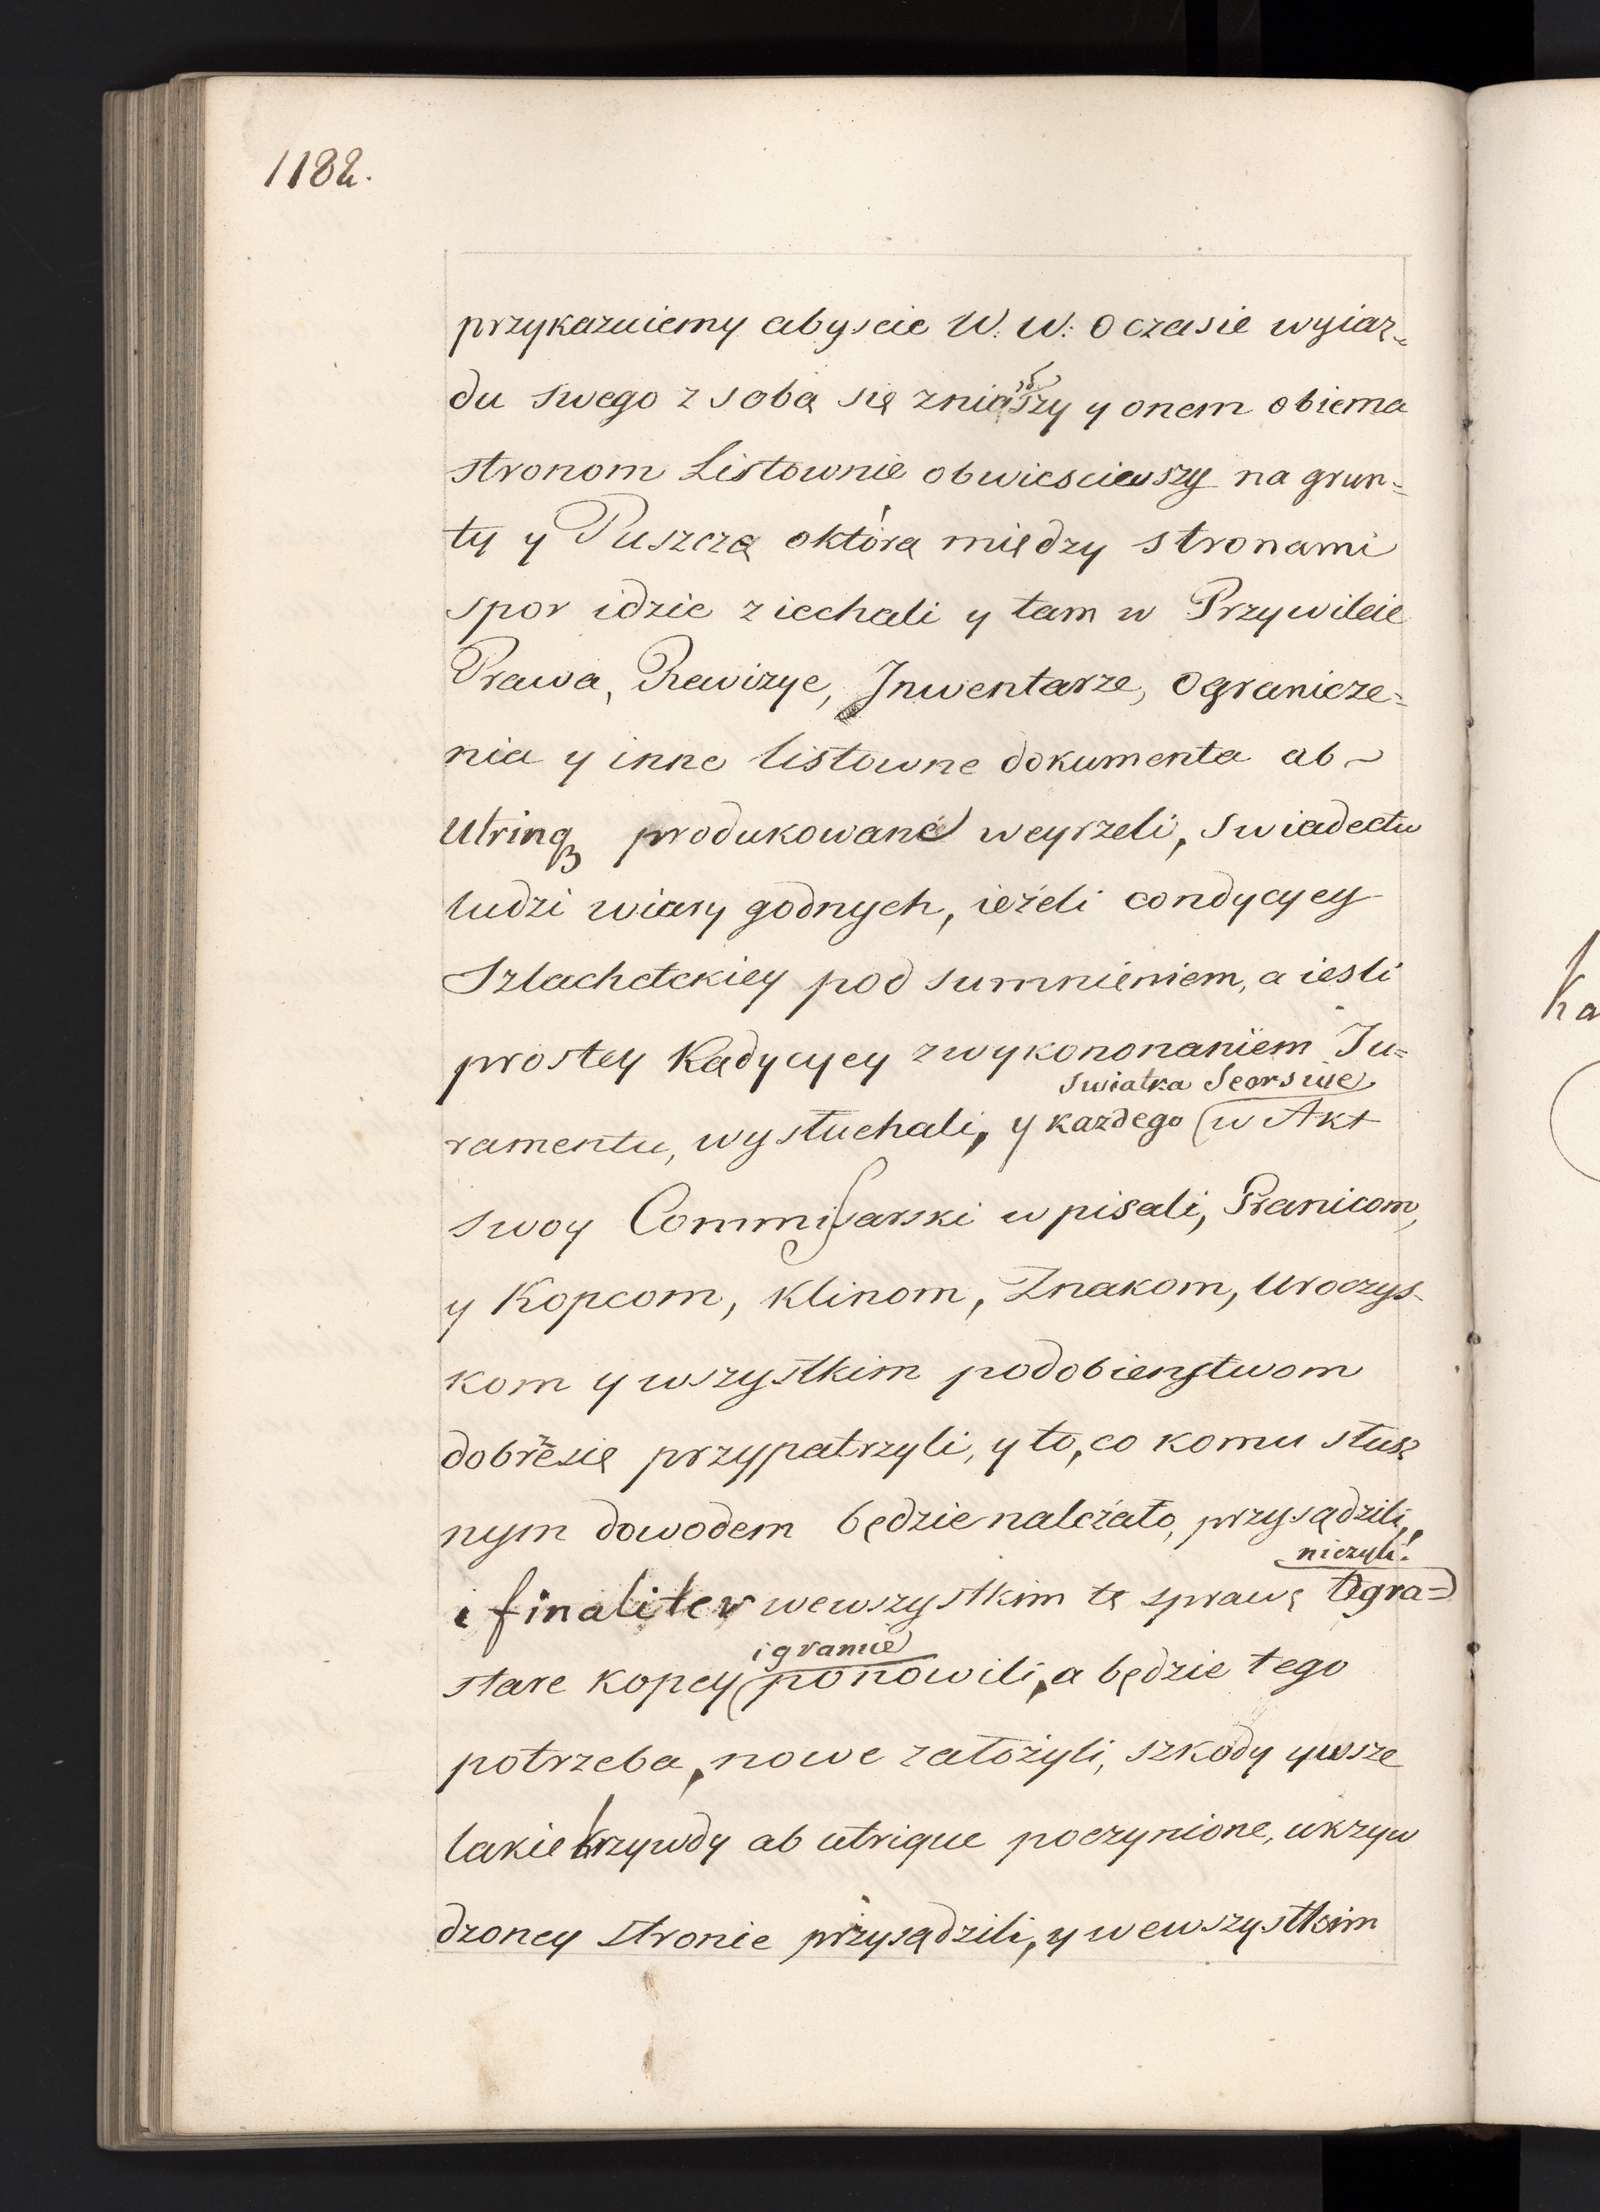 1182.
przykazuiemy abyscie W. W: o czasie wyiaz=
du swego z sobą się zniaszy y onem obiema
stronom Listownie obwiesciwszy na grun=
ty y Puszczą októrą między stronami
spor idzie ziechali y tam w Przywileie
Prawa, Rewizye, Inwentarze, Ogranicze=
nia y inne listowne dokumenta ab
Utrinq3 produkowane weyrzeli, swiadectw
ludzi wiary godnych, ieżeli condycyey
Szlacheckiey pod sumnieniem, a iesli
prostey Kądycyey zwykononaniem Ju=
swiatka Seorsive
ramentu, wysłuchali, y kazdego (w Akt
swoy Commissarski wpisali, Pranicom,
y Kopcom, Klinom, Znakom, Uroczys-
kom y wszystkim podobienstwom
dobrze się przypatrzyli, y to, co komu słusz
nym dowodem będzie nalezało, przysądzili,
niczyli.
i finaliter wewszystkim tę sprawę Ogra=)
i granice
stare kopcy (ponowili, a będzie tego
potrzeba, nowe założyli, szkody y wsze
lakie krzywdy ab utrique poczynione, ukrzyw
dzoney stronie przysądzili, y wewszystkim
Ka